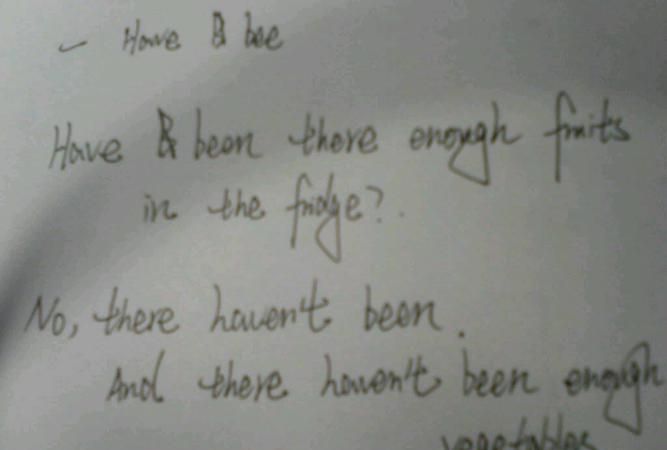 ✓ Have & bee
Have & been there enough fruits
in the fridge?.
No, there haven't been.
And there haven't been enough
vegetables